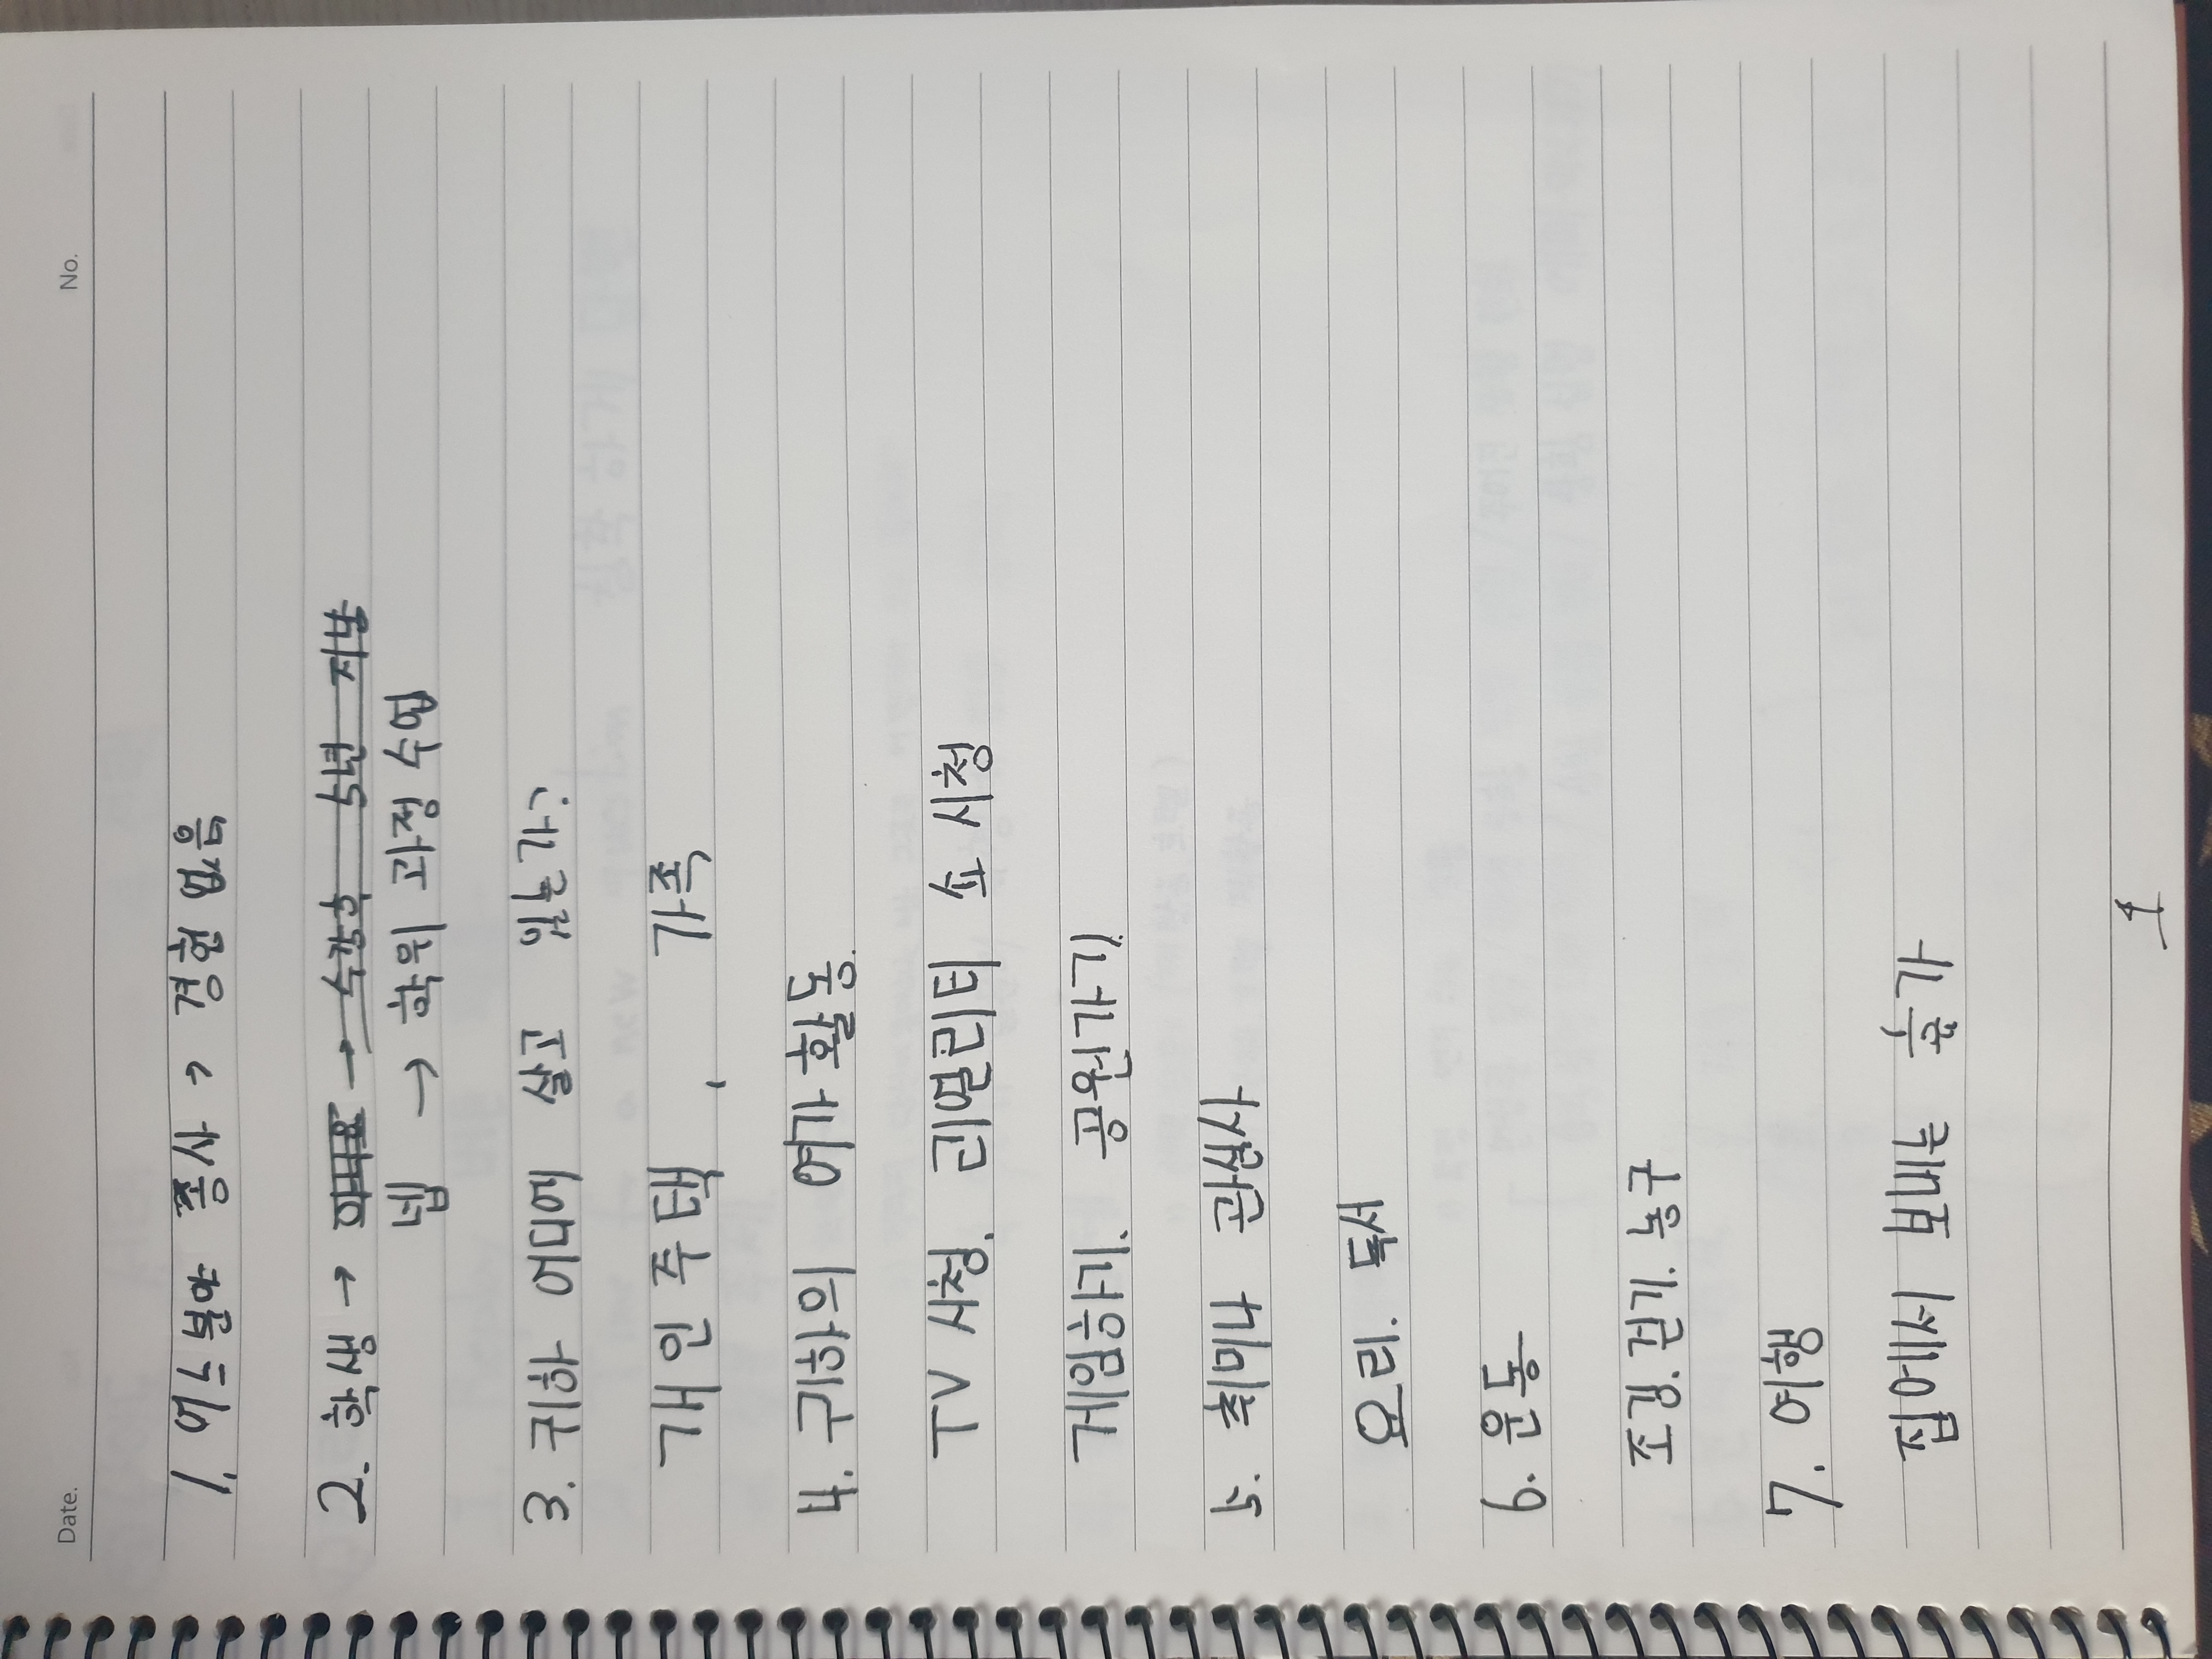 Date.
No.
1. 어느 분야 종사 → 경험 없음
2. 학생 → 아니요 → 수강후 5년 지남
넵 → 학위 과정 수업
3. 귀하 어디에 살고 있는가?
개인주택, 가족
4. 귀하의 여가 활동.
TV 시청. 리얼리티 쇼 시청
게임하기. 공원가기.
5. 취미나 관심사
요리. 독서
6. 운동
조깅. 걷기. 농구
7. 여행
집에서 보내는 휴가